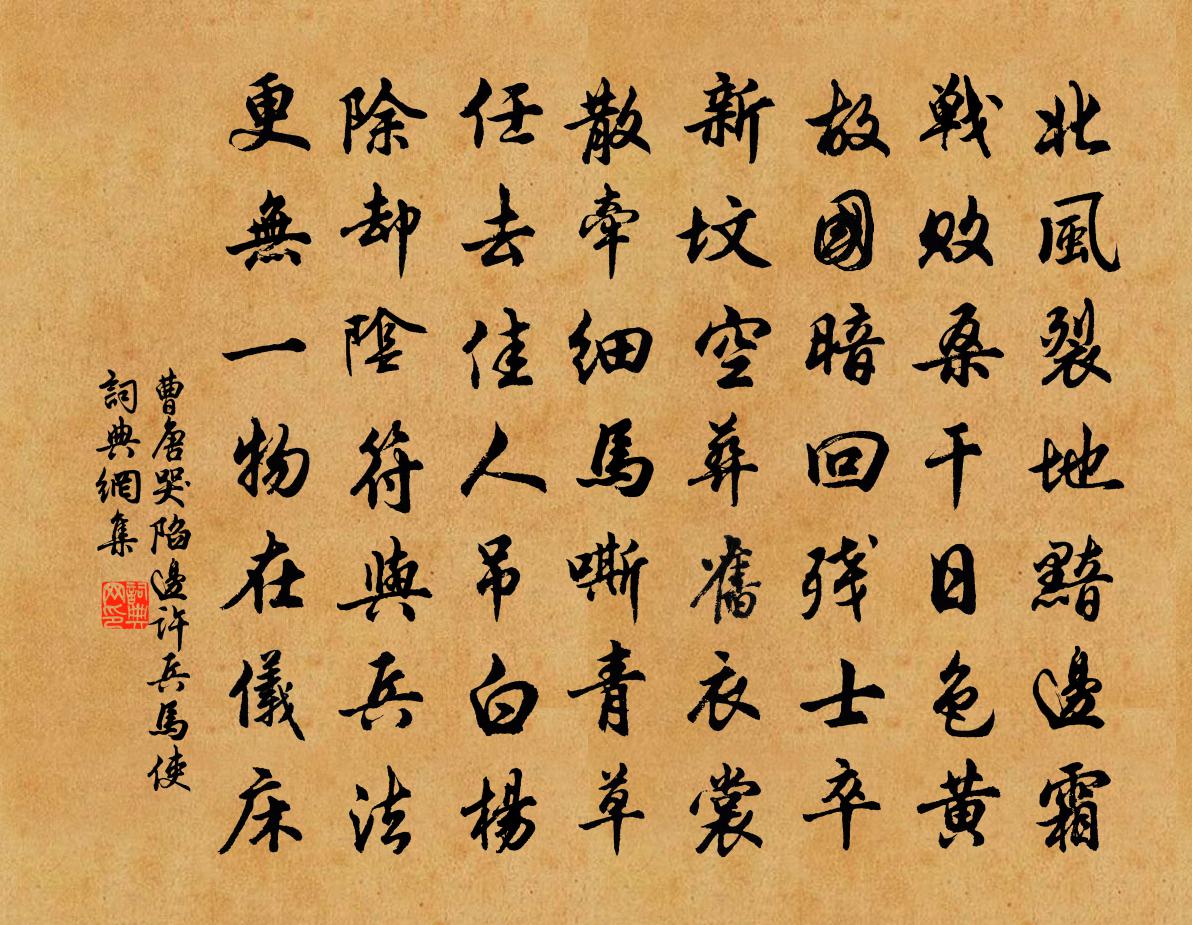 北風裂地黯邊霜
戰敗桑干日色黃
故國暗回殘士卒
新墳空葬舊衣裳
散牽細馬嘶青草
任去佳人吊白楊
除却陰符與兵法
更無一物在儀床
曹唐哭陷邊許兵馬使
詞典網集
詞典网印